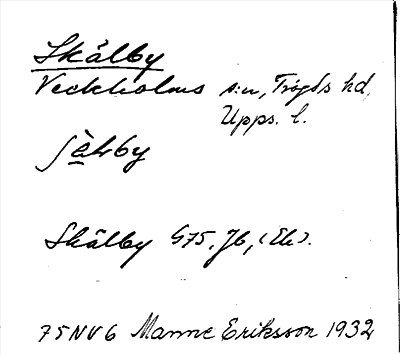 Skålby
Veckholms sn, Trögds hd,
Upps. l.
Skålby 475, Jb, (Ek).
75NV6 Manne Eriksson 1932